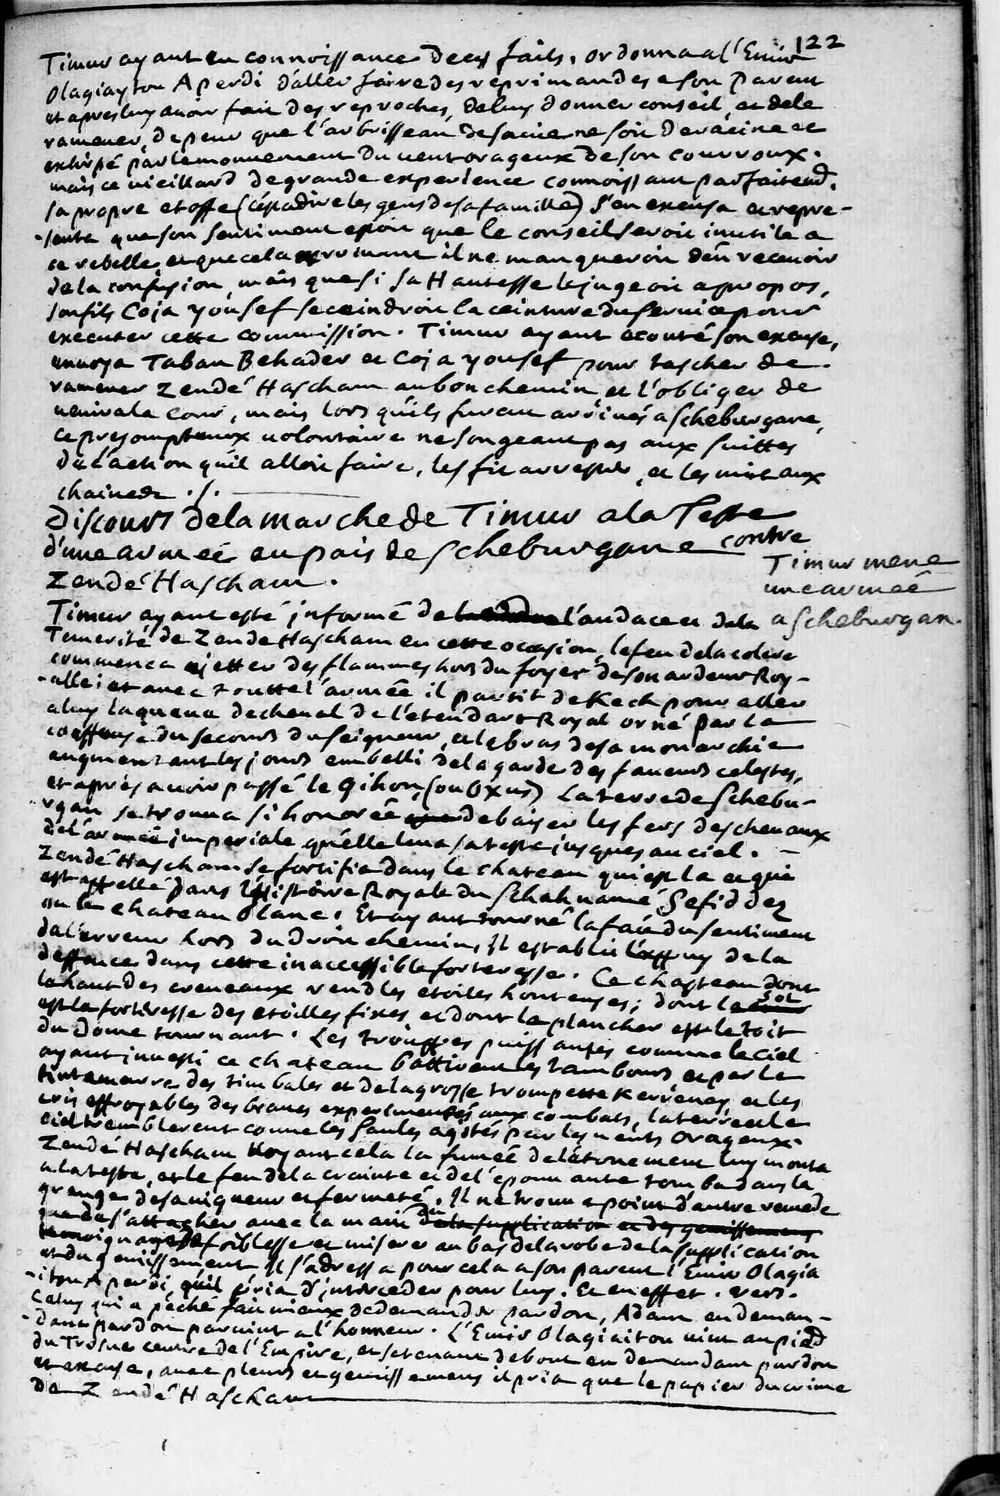 122
Timur ayant eu connoissance de ces faits, ordonna a l'Emir
Olagiaytou Aperdi d'aller faire des reprimandes a son parent
et apres luy avoir fait des reproches, de luy donner conseil, et de le
ramener, de peur que l'arbrisseau de sa vie ne soit deraciné et
extirpé par le mouvement du vent orageux de son courroux.
mais ce vieillard de grande experience connoissant parfaitemt.
sa propre etoffe (c'est a dire les gens de sa famille) s'en excusa et repre-
-senta que son sentiment estoit que le conseil seroit inutile a
ce rebelle, et que cela il ne manqueroit d'en recevoir
de la confusion, mais que si sa Hautesse le jugeoit apropos,
son fils Coja Yousef se ceindroit la ceinture du service pour
executer cette commission. Timur ayant ecouté son excuse,
envoya Taban Behader et Coja Yousef pour tascher de
ramener Zendé Hascham au bon chemin, et l'obliger de
venir a la cour, mais lors qu'ils furent arrivés a Scheburgane,
ce presomptueux volontaire ne songeant pas aux suittes
de l'action qu'il alloit faire, les fit arrester, et les mit aux
chaines ./.
Discours de la marche de Timur a la Teste
d'une armeé au païs de Scheburgane contre
Zendé Hascham.
Timur mene
une armeé
a Scheburgan.
Timur ayant esté informé de l'audace et de la
Temerité de Zende Hascham en cette occasion, le feu de la colere
commenca a jetter des flammes hors du foyer de son ardeur Roy-
-alle; et avec toutte l'armeé il partit de Kech pour aller
a luy la queue de cheval de l'etendart Royal orné par la
coeffure du secours du seigneur, et le bras de sa monarchie
augmentant les jours embelli de la garde des faveurs celestes,
et aprés avoir passé le Gihon, (ou Oxus) La terre de Schebu-
rgan se trouva si honoreé de baiser les fers des chevaux
de l'armeé imperiale qu'elle leva sa teste jusques au ciel. —
Zendé Hascham se fortifia dans le chateau qui est la et qui
est appellé dans l'histoire Royale du Schah namé Sefid dez
ou le chateau blanc. Et ayant tourné la face du sentiment
de l'erreur hors du droit chemin, Il establit l'appuy de la
deffence dans cette inaccessible forteresse. Ce chasteau dont
le haut des creneaux rend les etoiles honteuses; dont le sol
est la forteresse des etoilles fixes et dont le plancher est le toit
du dome tournant. Les trouppes puissantes comme le ciel
ayant investi ce chateau battirent les tambours et par le
tintamarre des timbales et de la grosse trompette Kerrenay et les
cris effroyables des braves experimentés aux combats, la terre et le
ciel tremblerent comme les saules agités par les vents orageux.
Zendé Hascham voyant cela la fumeé de l'etonement luy monta
a la teste, et le feu de la crainte et de l'epouvante tomba dans la
grange de sa vigueur et fermeté. Il ne trouva point d'autre remede
que de s'attacher avec la main du de la supplication et des gemissemens
temoignage de foiblesse et misere au bas de la robe de la supplication
et du gemissement Il s'adressa pour cela a son parent l'Emir Olagia
-itou Aperdi, qu'il pria d'interceder pour luy. Et en effet. vers.
Celuy qui a peché fait mieux de demander pardon, Adam en deman-
-dant pardon parvint a l'honneur. L'Emir Olagiaitou vint au pied
du Trosne centre de l'Empire, et se tenant debout en demandant pardon
et excuse, avec pleurs et gemissemens il pria que le papier du crime
de Zendé Hascham